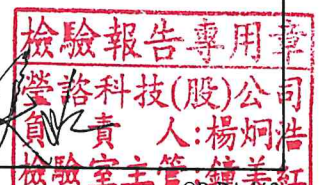 檢驗報告專用章
瑩諮科技(股)公司
負責人:楊炯浩
檢驗室主管:鍾美紅